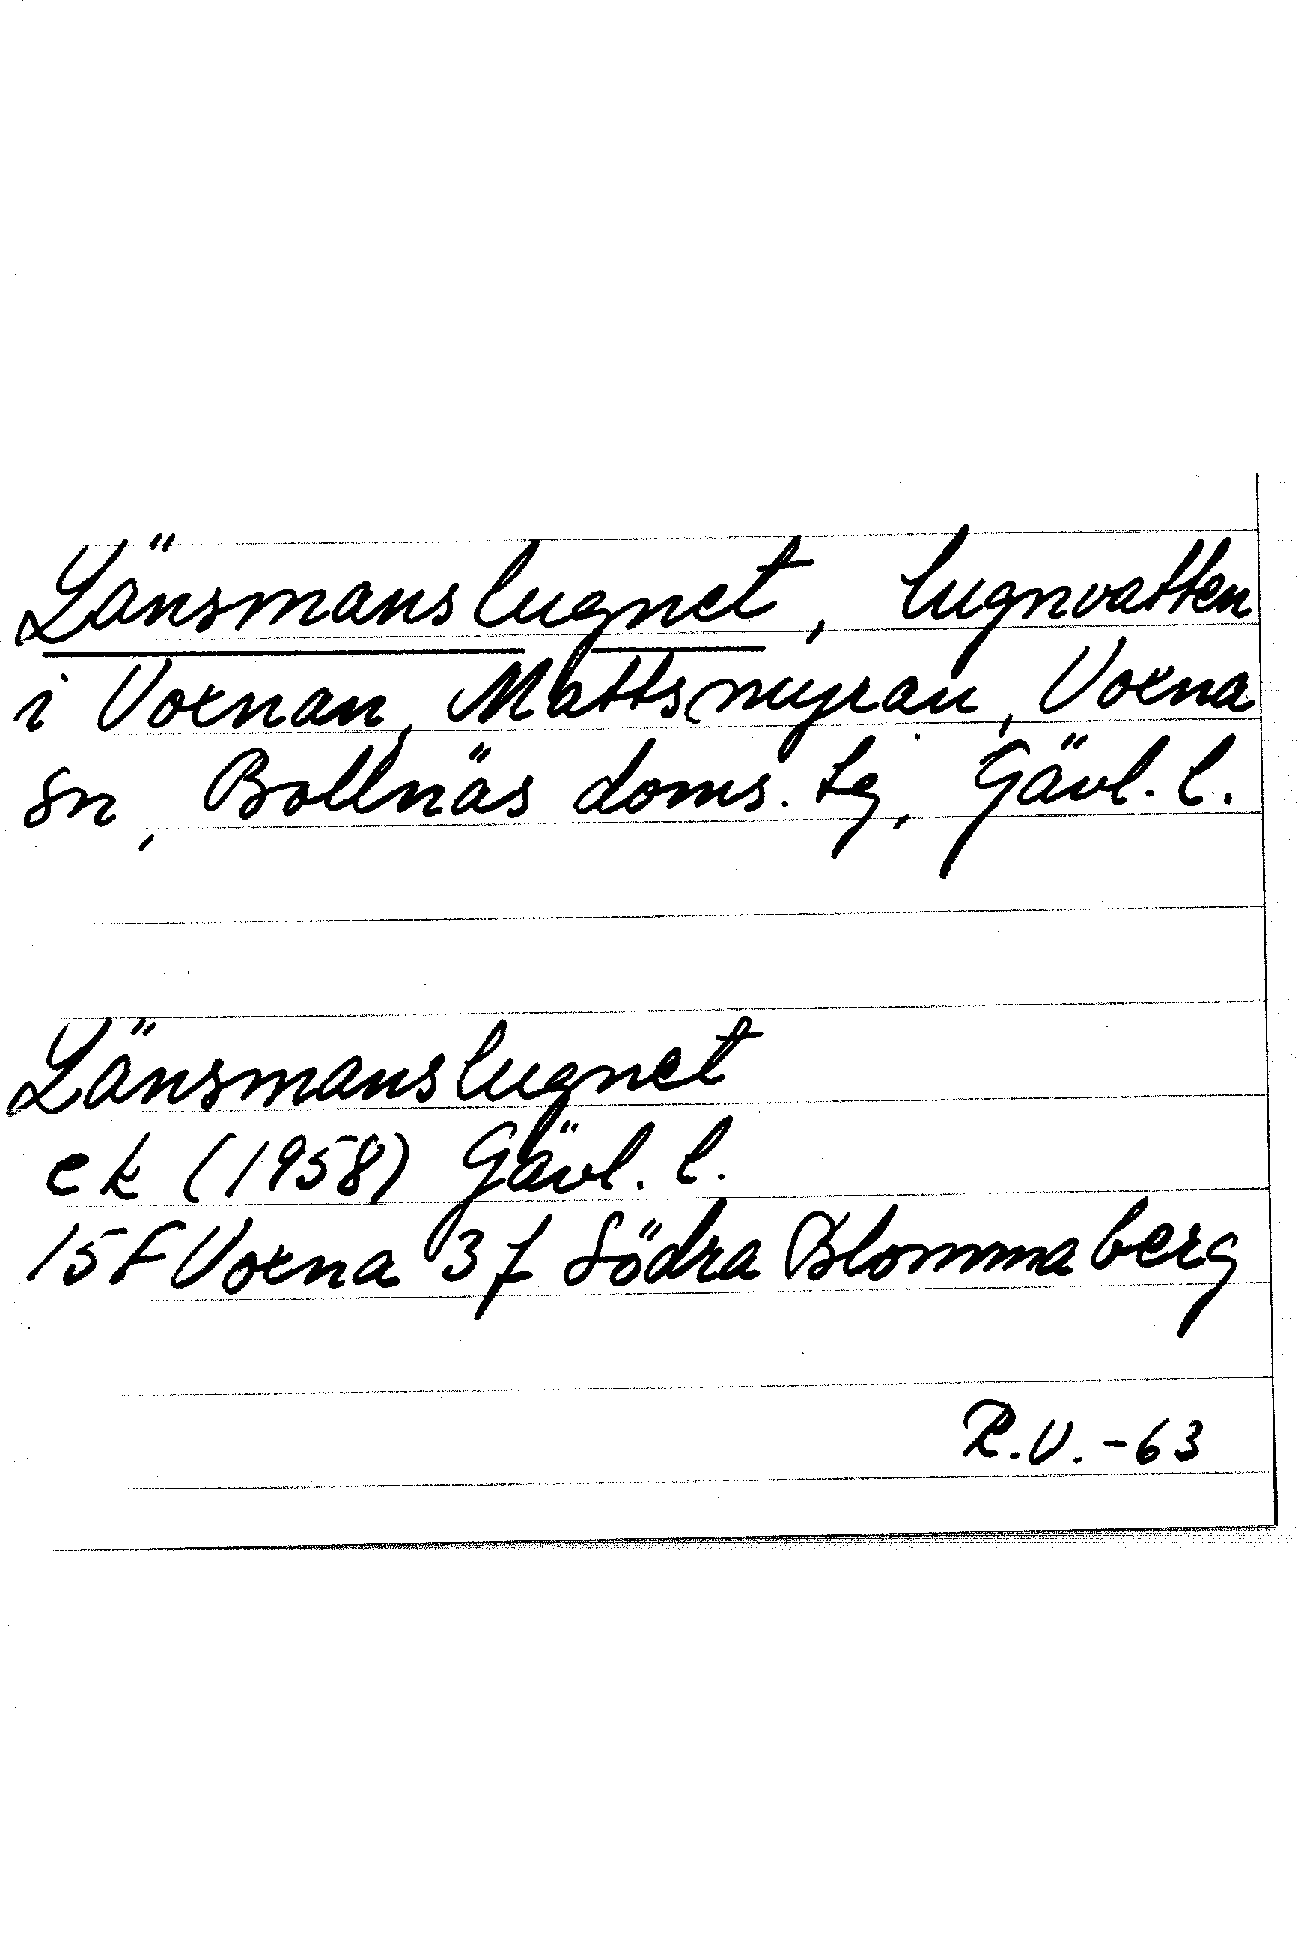 Länsmanslugnet, lugnvatten
i Voxnan, Mattsmyran, Voxna
sn, Bollnäs doms. tg, Gävl. l.
Länsmanslugnet
ek (1958) Gävl. l.
15F Voxna 3f Södra Blommaberg
R.V. -63